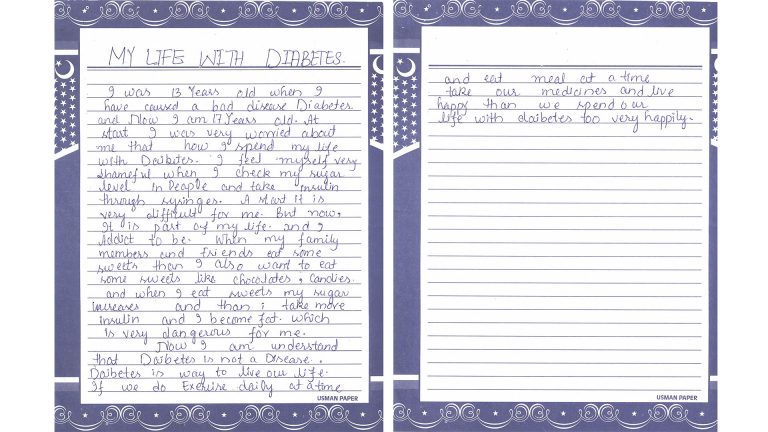 MY LIFE WITH DIABETES.
I was 13 Years old when I
have caused a bad disease Diabetes
and Now I am 17 Years old. At
start I was very worried about
me that how I spend my life
with Daibetes. I feel myself very
shameful when I check my sugar
level In People and take insulin
through syringes. A start It is
very difficult for me. But now,
It is part of my life. and I
Addict to be. When my family
members and friends eat some
sweets than I also want to eat
some sweets like chocolates, Candies.
and when I eat sweets my sugar
increases and than i take more
insulin and I become fat. which
is very dangerous for me.
Now I am understand
that Daibetes is not a Disease.
Daibetes is way to live our life.
If we do Exercise daily at a time
USMAN PAPER
and eat meal at a time
take our medicines and live
happy than we spend our
life with daibetes too very happily.
USMAN PAPER